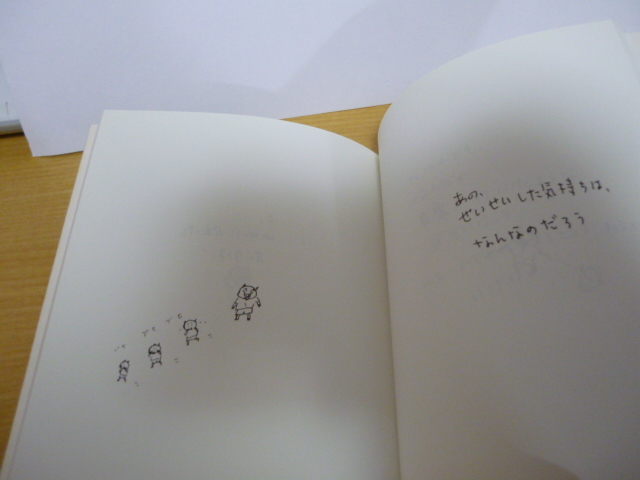 あの、
せいせいした気持ちは、
なんなのだろう